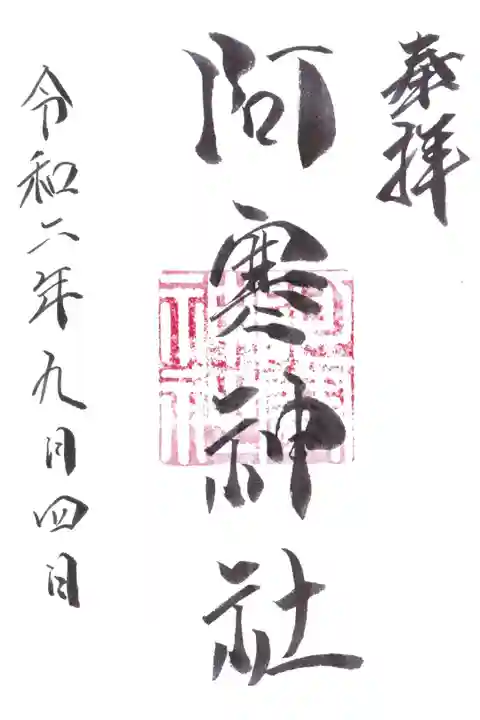 奉拝
阿寒神社
令和六年九月四日